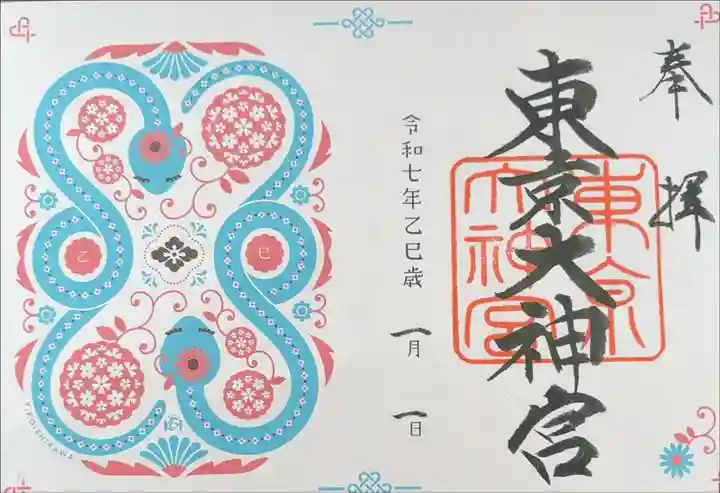 奉拝
東京大神宮
東京大神宮
令和七年乙巳歳 一月 一日
乙
巳